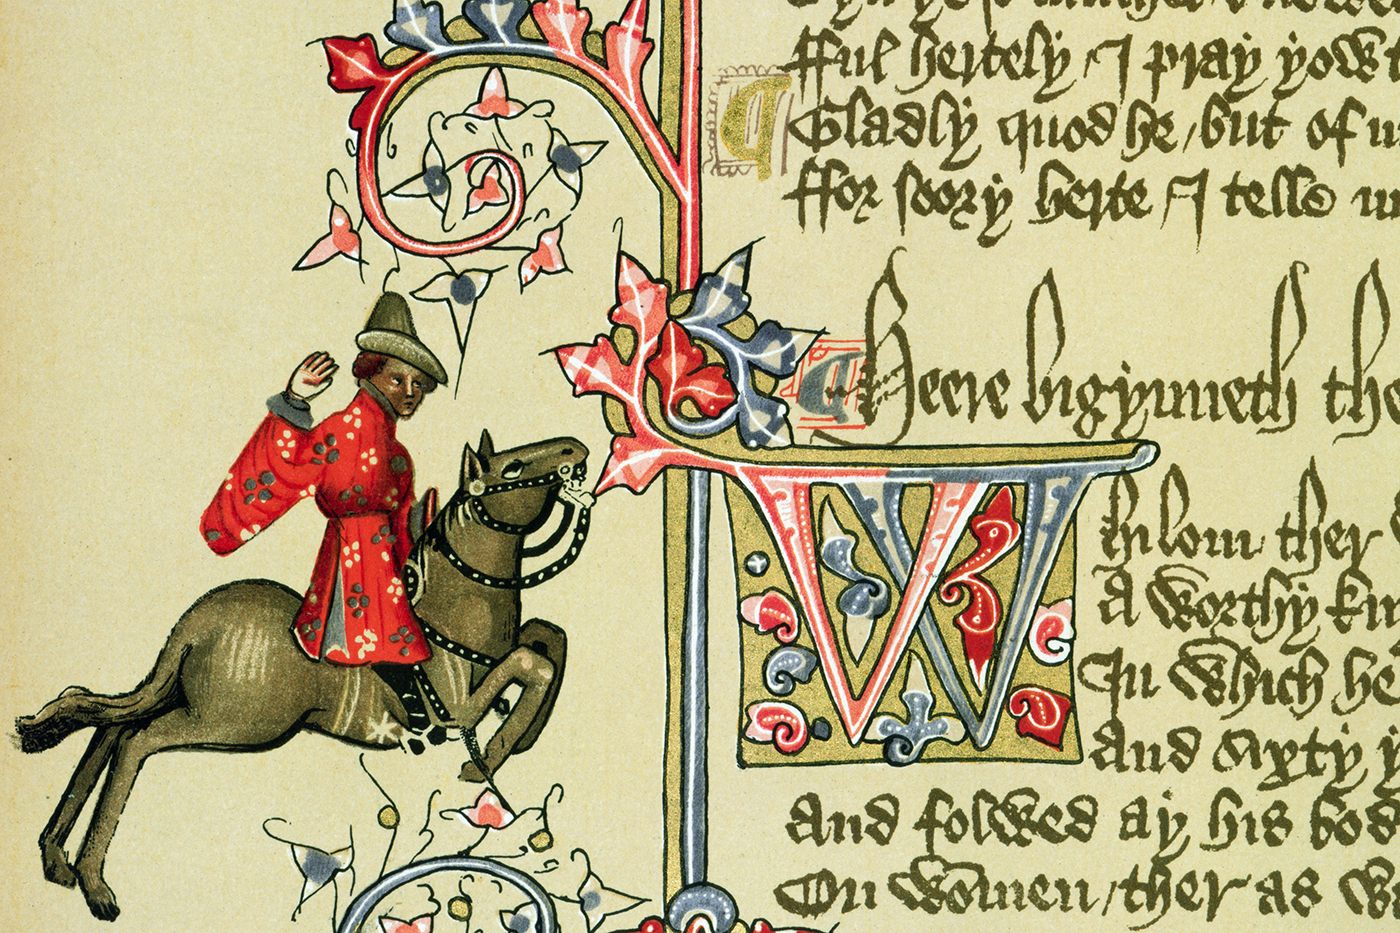 fful hertely / I pray yow
Gladly quod he / but of
ffor soory herte / I telle
Heere bigynneth the
Whilom ther
A worthy
In which he
And sixty
And folwed ay his
On wommen / ther as